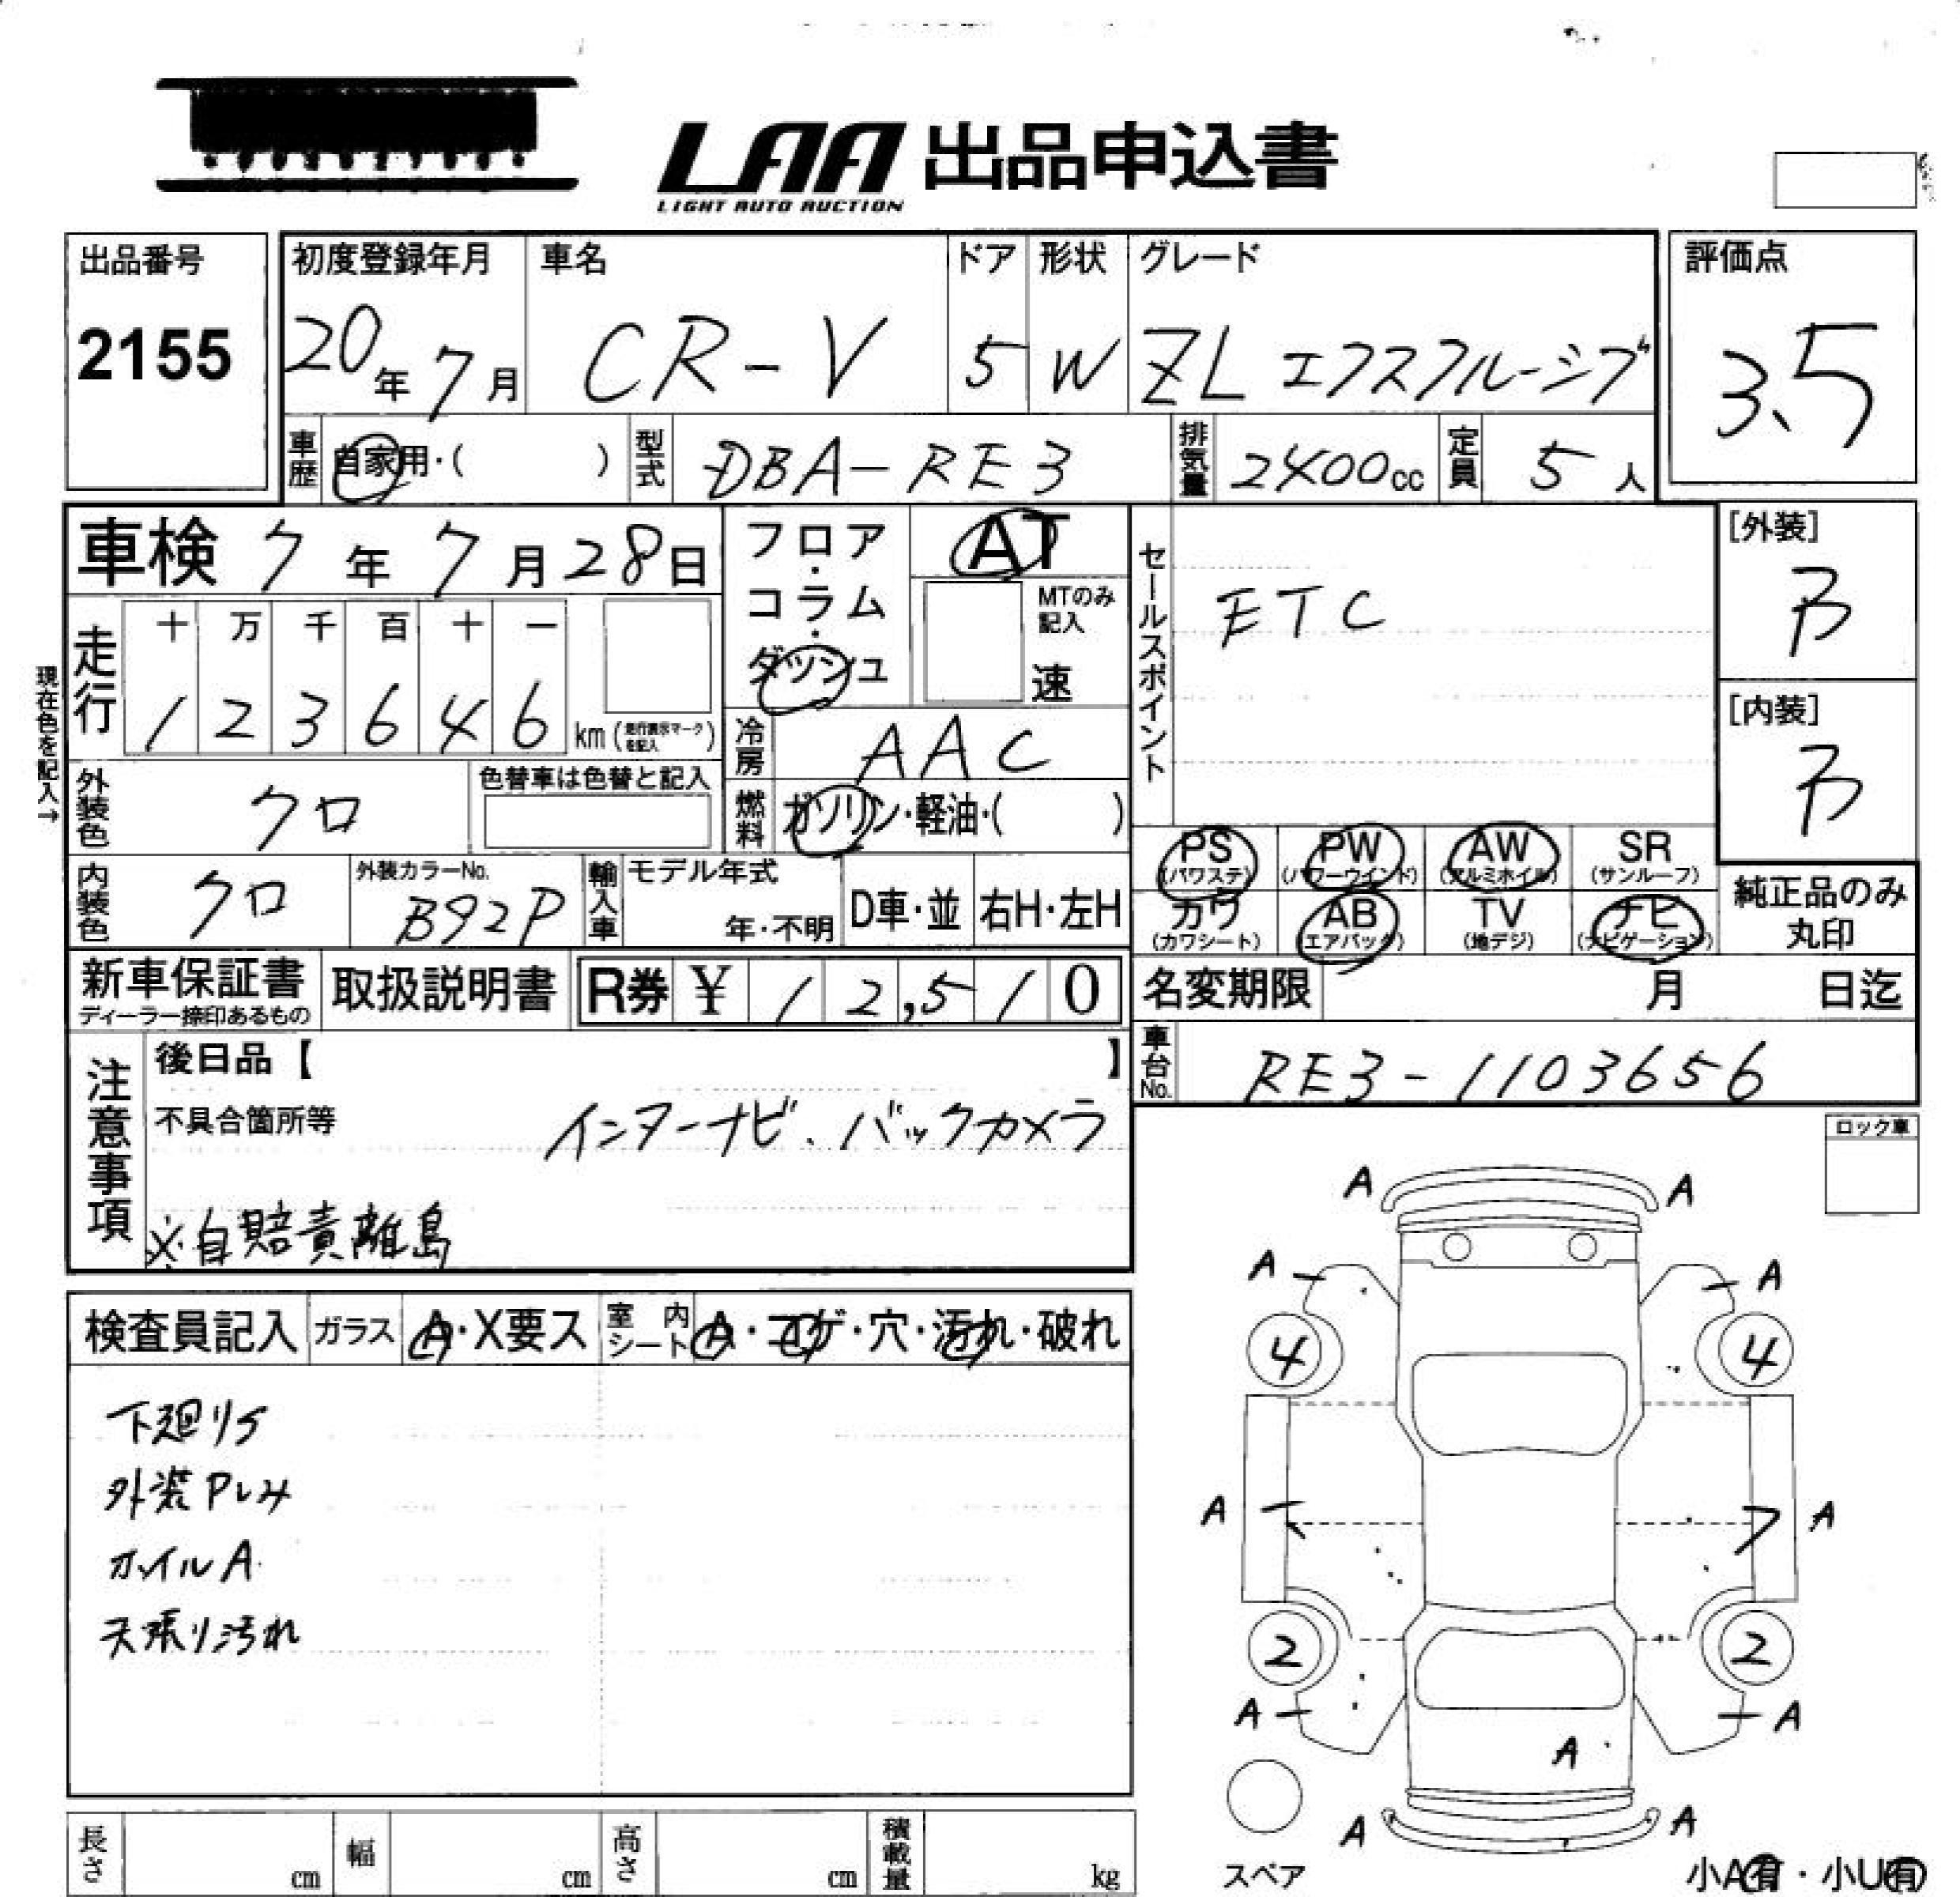 LAA 出品申込書
LIGHT AUTO AUCTION
出品番号
2155
初度登録年月
20年7月
車名
CR-V
ドア
5
形状
W
グレード
ZL エクスクルーシブ
評価点
3.5
車歴
自家用・( )
型式
DBA-RE3
排気量
2400cc
定員
5人
車検 7年7月28日
フロア・コラム・ダッシュ
AT
MTのみ記入
速
セールスポイント
ETC
[外装]
B
[内装]
B
現在色を記入→
走行
十 万 千 百 十 一
1 2 3 6 4 6 km (走行表示マークを記入)
冷房
AAC
燃料
ガソリン・軽油・( )
外装色
クロ
色替車は色替と記入
内装色
クロ
外装カラーNo.
B92P
輸入車
モデル年式
年・不明
D車・並
右H・左H
PS (パワステ)
PW (パワーウインド)
AW (アルミホイル)
SR (サンルーフ)
カワ (カワシート)
AB (エアバック)
TV (地デジ)
ナビ (ナビゲーション)
純正品のみ丸印
新車保証書
ディーラー捺印あるもの
取扱説明書
R券 ¥ 12,510
名変期限 月 日迄
車台No.
RE3-1103656
注意事項
後日品【 】
不具合箇所等
インターナビ、バックカメラ
※自賠責離島
ロック車
検査員記入
ガラス
A・X要ス
室内シート
A・コゲ・穴・汚れ・破れ
下廻りS
外装Pしみ
ホイルA
天張り汚れ
A A
A A
4 4
A A
2 2
A A
A
A A
スペア
小A有・小U有
長さ cm
幅 cm
高さ cm
積載量 kg